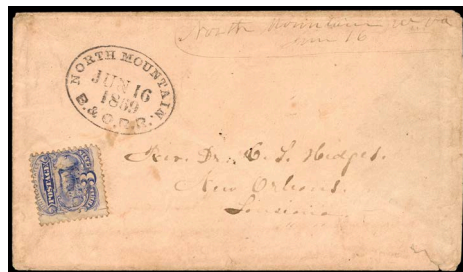 North Mountain W Va
June 16
NORTH MOUNTAIN.
JUN 16
1869
B. & O. R. R.
Rev. Dr. C. S. Hedges.
New Orleans.
Louisiana
POSTAGE